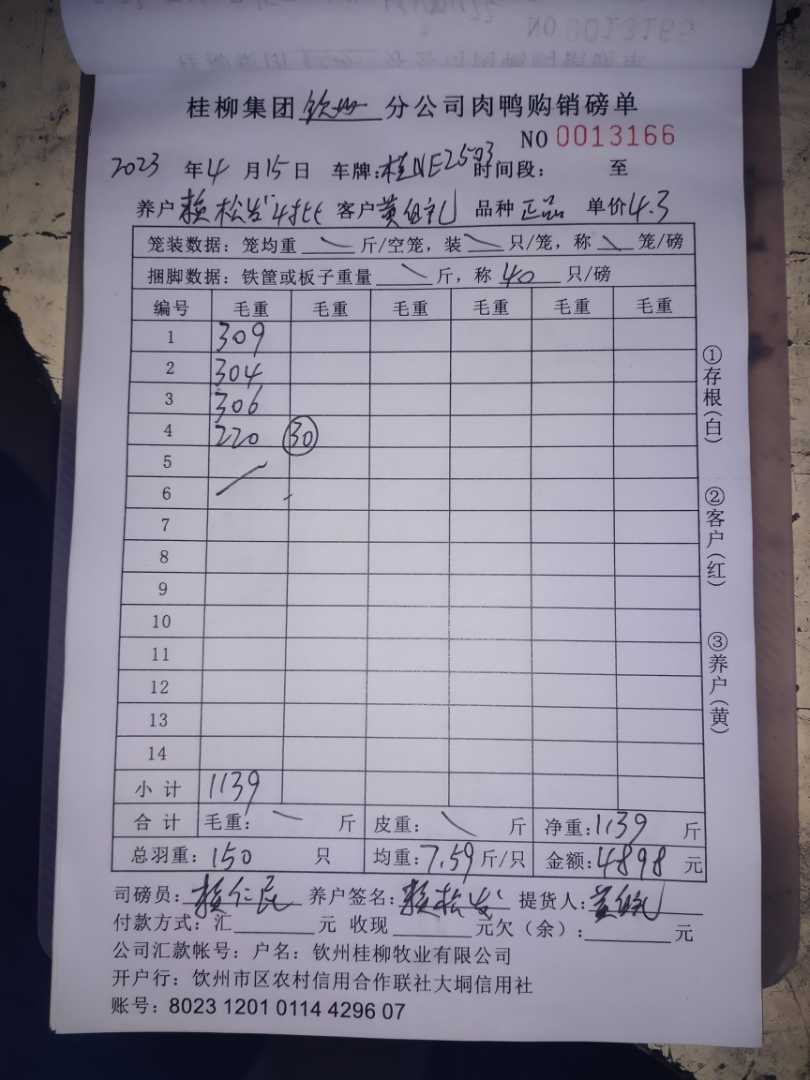 桂柳集团 钦州 分公司肉鸭购销磅单
NO 0013166
2023 年 4 月 15 日 车牌: 桂NE2503 时间段: 至
养户 赖松发 4批 客户 黄 礼 品种 正品 单价 4.3
笼装数据: 笼均重 斤/空笼, 装 只/笼, 称 笼/磅
捆脚数据: 铁筐或板子重量 斤, 称 40 只/磅
编号 毛重 毛重 毛重 毛重 毛重 毛重
1 309
2 304
3 306
4 220 30
5
6
7
8
9
10
11
12
13
14
小计 1139
合计 毛重: 斤 皮重: 斤 净重: 1139 斤
总羽重: 150 只 均重: 7.59 斤/只 金额: 4898 元
司磅员: 赖仁民 养户签名: 赖松发 提货人: 黄 礼
付款方式: 汇 元 收现 元欠(余): 元
公司汇款帐号: 户名: 钦州桂柳牧业有限公司
开户行: 钦州市区农村信用合作联社大垌信用社
账号: 8023 1201 0114 4296 07
①存根(白)
②客户(红)
③养户(黄)